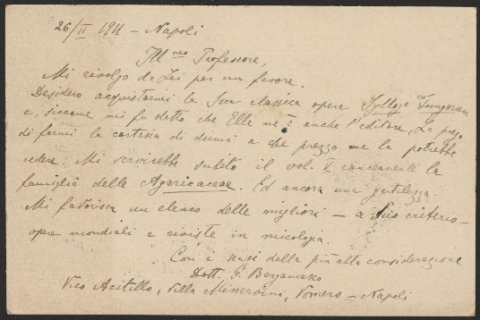 26/II 1911 - Napoli
Ill.mo Professore,
Mi rivolgo a Lei per un favore.
Desidero acquistarmi la Sua classica opera Sylloge Fungorum
e, siccome mi fu detto che Elle ne è anche l'editore, La prego
di farmi la cortesia di dirmi a che prezzo me la potrebbe
cedere. Mi servirebbe subito il vol. concernente la
famiglia delle Agaricaceae. Ed ancora una gentilezza.
Mi favorisca un elenco delle migliori - a Suo criterio -
opere mondiali e riviste in micologia.
Con i sensi della più alta considerazione
Dott. G. Bergamasco
Vico Acitillo, Villa Minervini, Vomero - Napoli